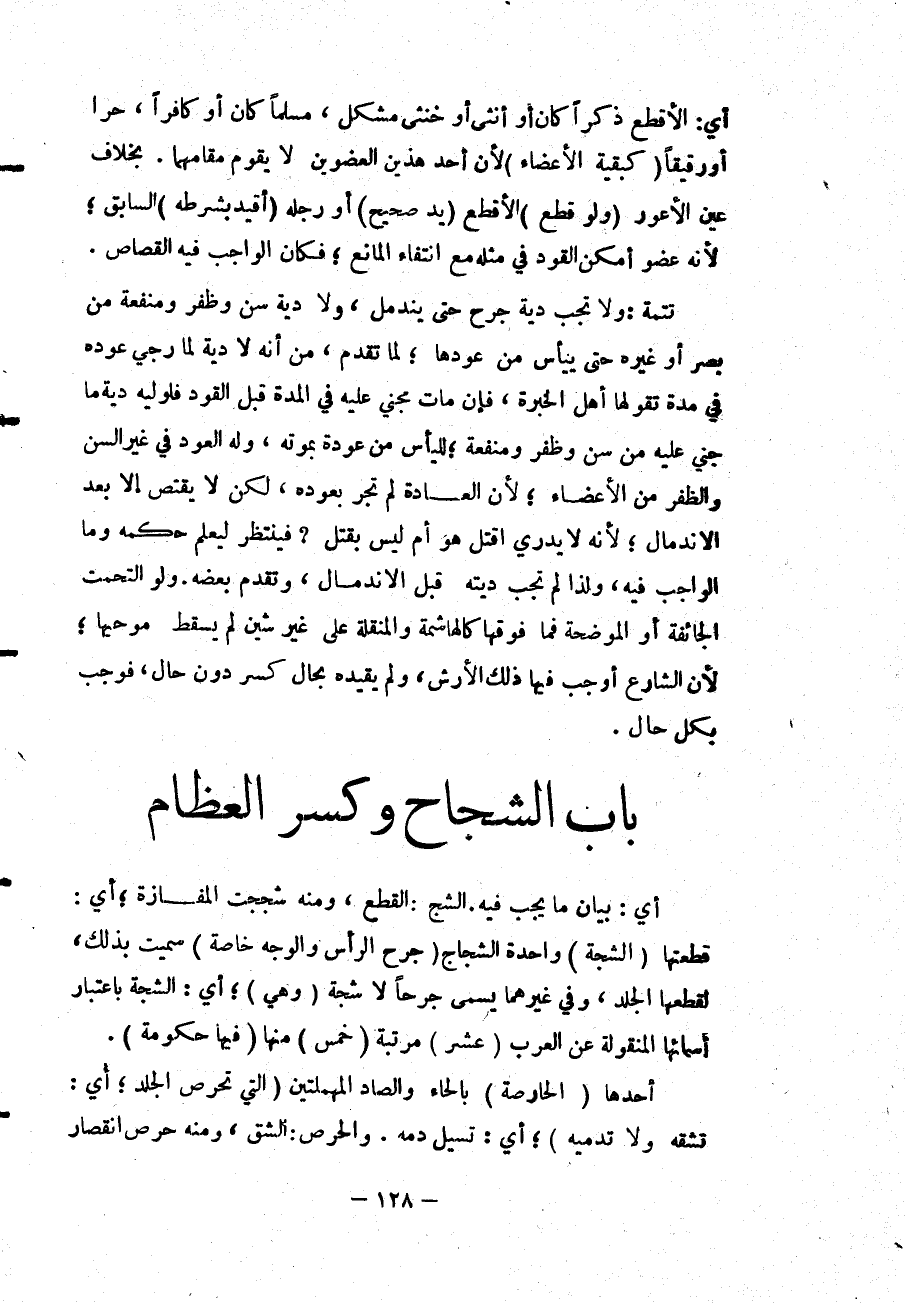 أي: الأقطع ذكراً كان أو أنثى أو خنثى مشكل ، مسلماً كان أو كافراً ، حرا
أو رقيقاً ( كبقية الأعضاء ) لأن أحد هذين العضوين لا يقوم مقامهما . بخلاف
عين الأعور ( ولو قطع ) الأقطع ( يد صحيح ) أو رجله ( أقيد بشرطه ) السابق ؛
لأنه عضو أمكن القود في مثله مع انتفاء المانع ؛ فكان الواجب فيه القصاص .
تتمة : ولا تجب دية جرح حتى يندمل ، ولا دية سن وظفر ومنفعة من
بصر أو غيره حتى ييأس من عودها ؛ لما تقدم ، من أنه لا دية لما رجي عوده
في مدة تقولها أهل الخبرة ، فإن مات مجني عليه في المدة قبل القود فلوليه دية ما
جني عليه من سن وظفر ومنفعة ؛ لليأس من عودة بموته ، وله العود في غير السن
والظفر من الأعضاء ؛ لأن العادة لم تجر بعوده ، لكن لا يقتص إلا بعد
الاندمال ؛ لأنه لا يدري اقتل هو أم ليس بقتل ؟ فينتظر ليعلم حكمه وما
الواجب فيه ، ولذا لم تجب ديته قبل الاندمال ، وتقدم بعضه . ولو التحمت
الجائفة أو الموضحة فما فوقها كالهاشمة والمنقلة على غير شين لم يسقط موجبها ؛
لأن الشارع أوجب فيها ذلك الأرش ، ولم يقيده بحال كسر دون حال ، فوجب
بكل حال .
باب الشجاج وكسر العظام
أي : بيان ما يجب فيه . الشج : القطع ، ومنه شججت المفازة ؛ أي :
قطعتها ( الشجة ) واحدة الشجاج ( جرح الرأس والوجه خاصة ) سميت بذلك ،
لقطعها الجلد ، وفي غيرهما يسمى جرحاً لا شجة ( وهي ) ؛ أي : الشجة باعتبار
أسمائها المنقولة عن العرب ( عشر ) مرتبة ( خمس ) منها ( فيها حكومة ) .
أحدها ( الحارصة ) بالحاء والصاد المهملتين ( التي تحرص الجلد ؛ أي :
تشقه ولا تدميه ) ؛ أي : تسيل دمه . والحرص : الشق ، ومنه حرص انقصار
– ١٢٨ –